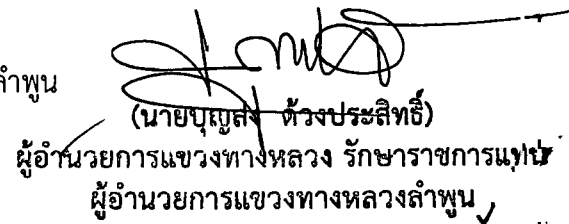 ลำพูน
(นายบุญส่ง ด้วงประสิทธิ์)
ผู้อำนวยการแขวงทางหลวง รักษาราชการแทน
ผู้อำนวยการแขวงทางหลวงลำพูน